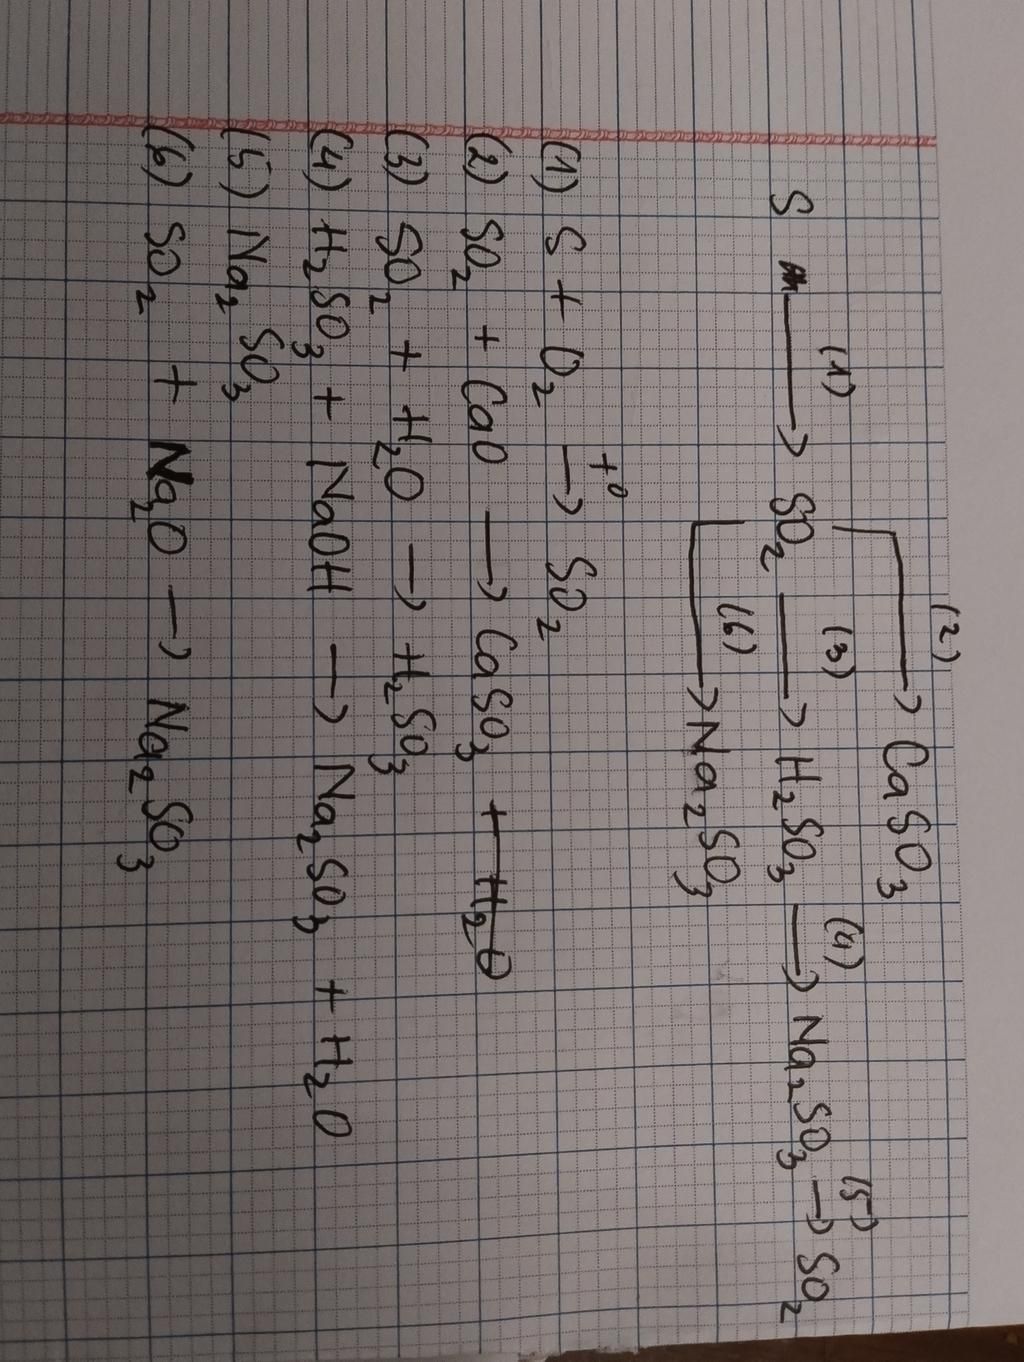 (2)
CaSO3
S (1) → SO2 (3) → H2SO3 (4) → Na2SO3 (5) → SO2
(6) → Na2SO3
(1) S + O2 →t° SO2
(2) SO2 + CaO → CaSO3 + H2O
(3) SO2 + H2O → H2SO3
(4) H2SO3 + NaOH → Na2SO3 + H2O
(5) Na2SO3
(6) SO2 + Na2O → Na2SO3